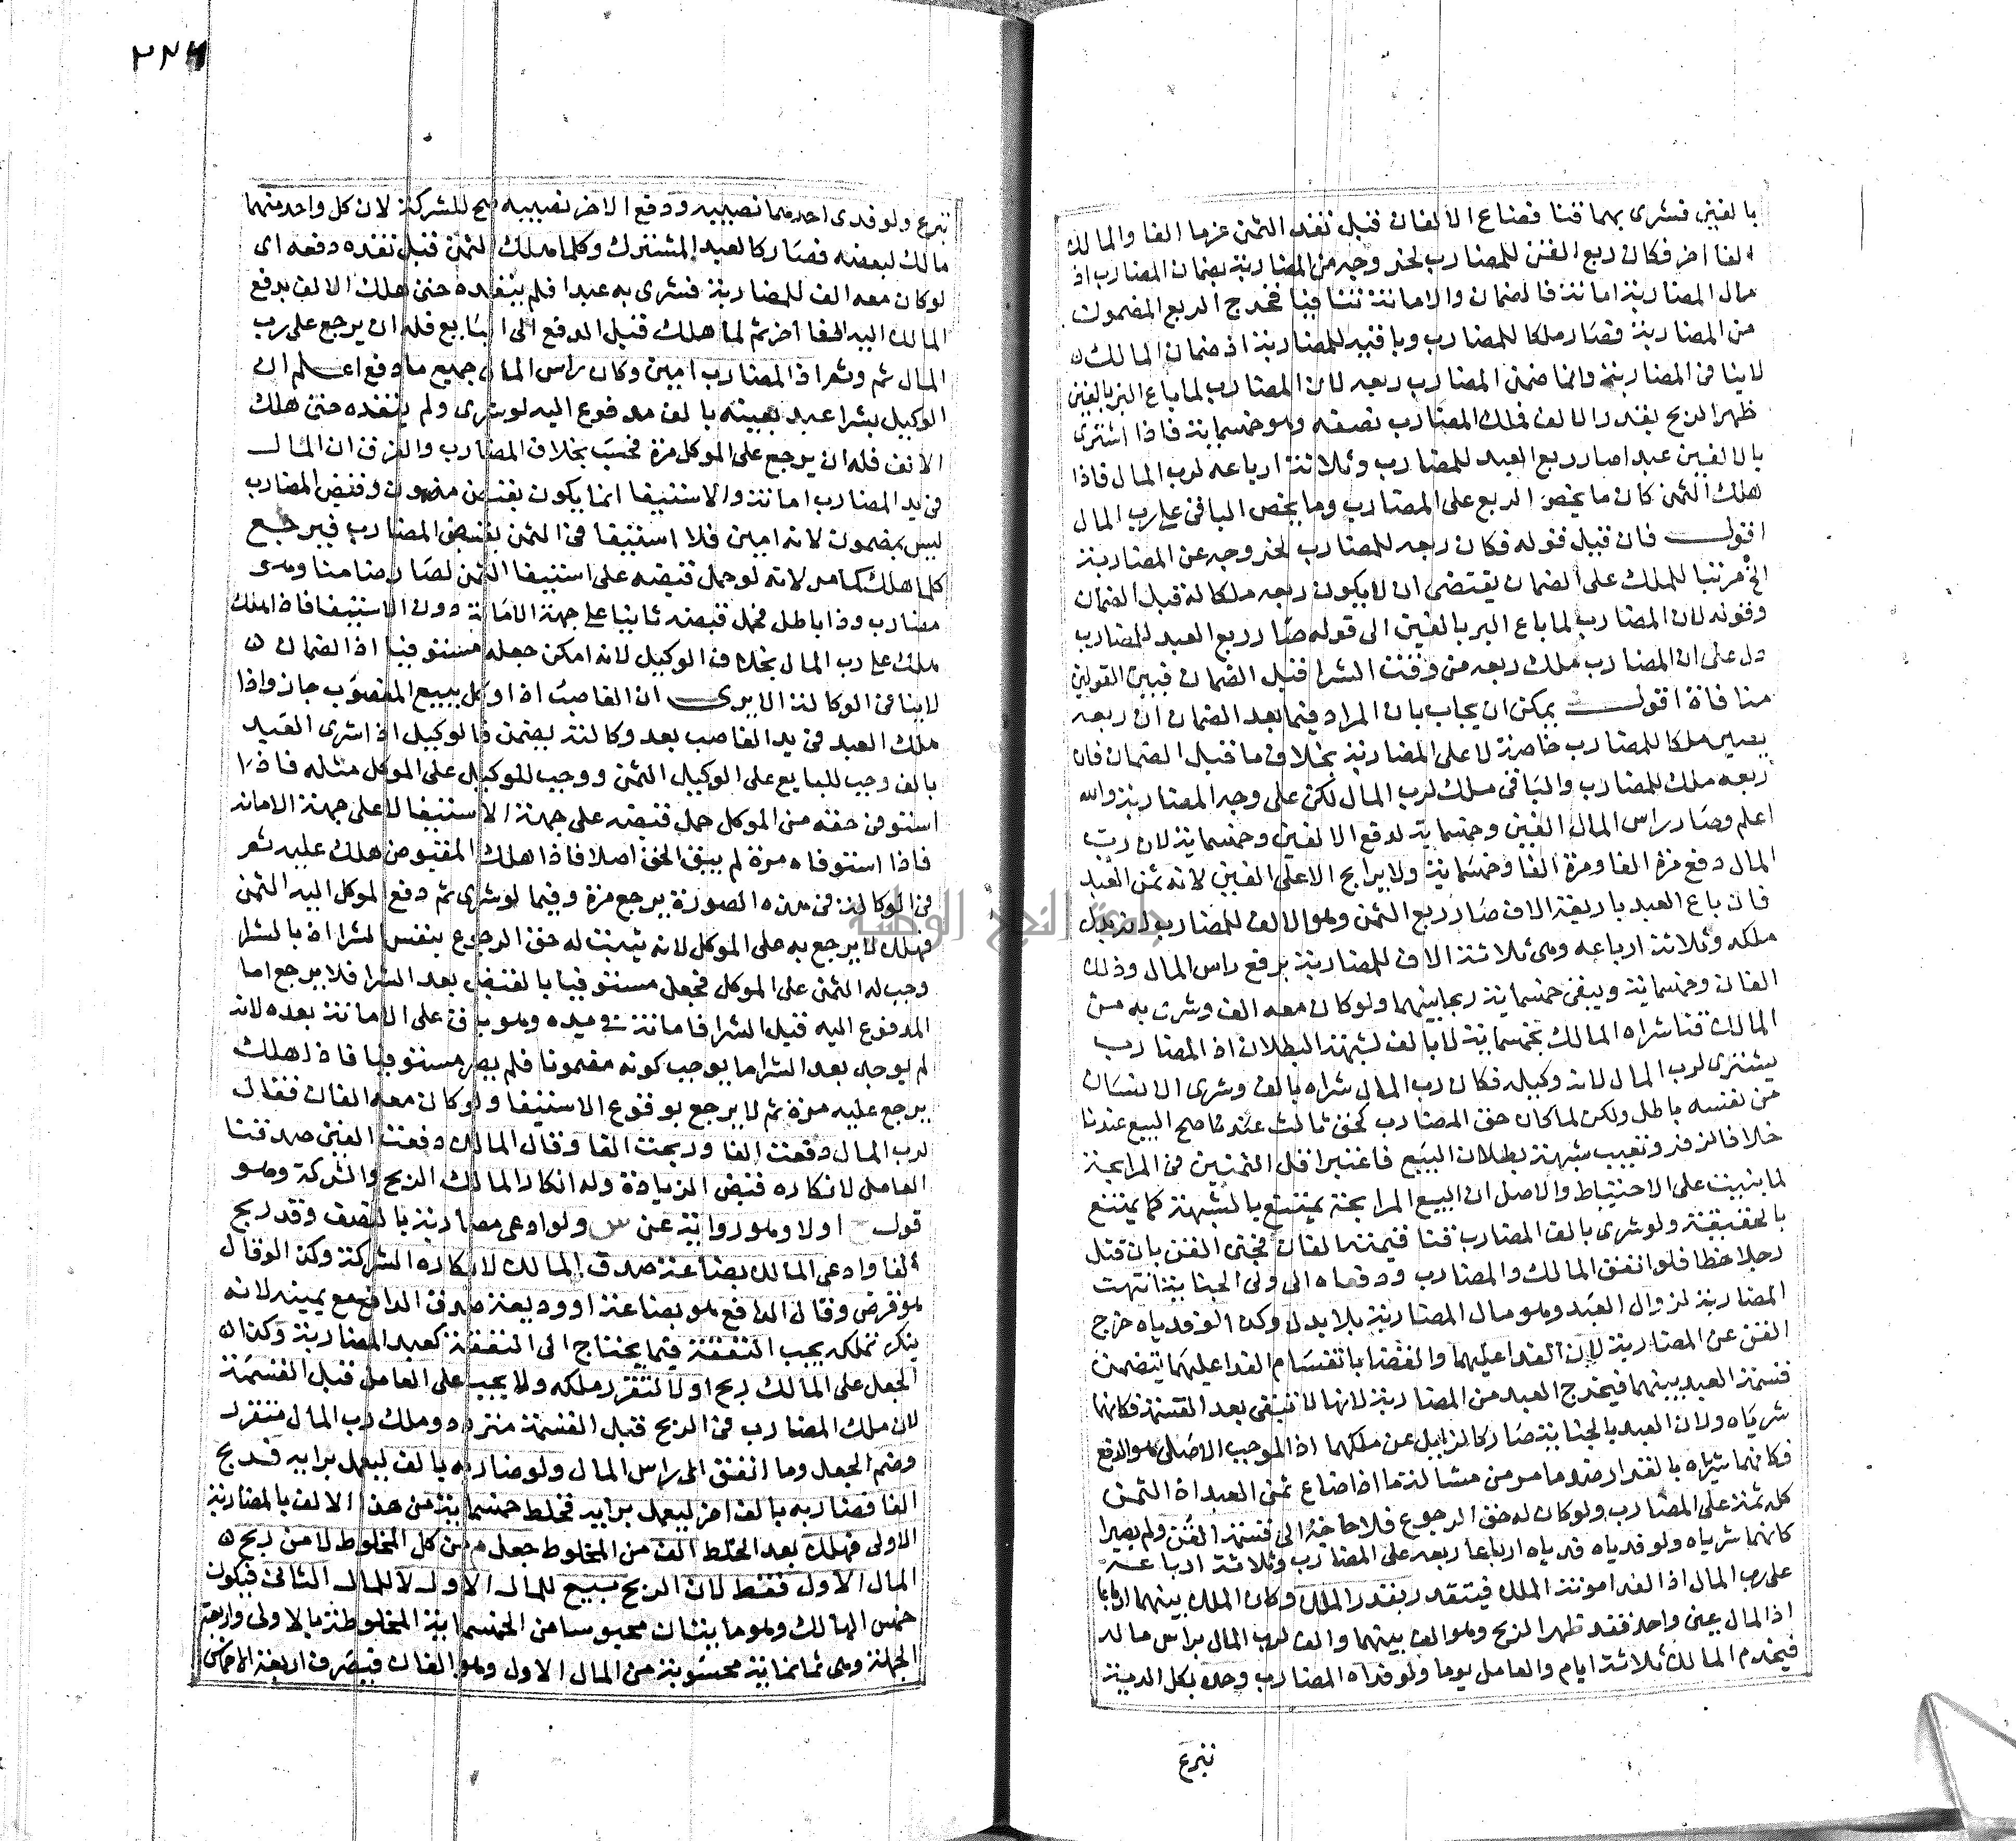 بالفين فشرى بهما قنا فضاع الالفان قبل نقد الثمن غرما الفا والمالك
الفا اخر فكان ربع القن للمضارب لخروجه من المضاربة بضمان المضارب اذ
مال المضاربة امانة فالضمان والامانة تنافيا فخرج الربع المضمون
من المضاربة فصار ملكا للمضارب وباقيه للمضاربة اذ ضمان المالك
لا ينافي المضاربة وانما ضمن المضارب ربعه لان المضارب لما باع البز بالفين
ظهر الربح بقدر الالف فملك المضارب نصفه وهو خمسماية فاذا اشترى
بالالفين عبدا صار ربع العبد للمضارب وثلاثة ارباعه لرب المال فاذا
هلك الثمن كان ما يخص الربع على المضارب وما يخص الباقي على رب المال
اقول فان قيل قوله فكان ربعه للمضارب لخروجه عن المضاربة
الخ مرتبا للملك على الضمان يقتضى ان لا يكون ربعه ملكا له قبل الضمان
وقوله لان المضارب لما باع البز بالفين الى قوله صار ربع العبد للمضارب
دل على ان المضارب ملك ربعه من وقت الشرا قبل الضمان فبين القولين
منافاة اقول يمكن ان يجاب بان المراد فيما بعد الضمان ان ربعه
يصير ملكا للمضارب خاصة لا على المضاربة بخلاف ما قبل الضمان فان
ربعه ملك للمضارب والباقى ملك لرب المال لكن على وجه المضاربة والله
اعلم وصار راس المال الفين وخمسماية لدفع الالفين وخمسماية لان رب
المال دفع مرة الفا ومرة الفا وخمسماية ولا يرابح الا على الفين لانه ثمن العبد
فان باع العبد باربعة الاف صار ربع الثمن وهو الالف للمضارب لانه بدل
ملكه وثلاثة ارباعه وهى ثلاثة الاف للمضاربة يرفع راس المال وذلك
الفان وخمسماية ويبقى خمسماية ربحا بينهما ولو كان معه الف وشرى به من
المالك قنا شراه المالك بخمسماية لا بالف لشبهة البطلان اذ المضارب
يشترى لرب المال لانه وكيله فكان رب المال شراه بالف وشرى الانسان
من نفسه باطل ولكن لما كان حق المضارب كحق ثالث عندنا صح البيع عندنا
خلافا لزفر وتعيب شبهة بطلان البيع فاعتبر اقل الثمنين فى المرابحة
لما بنيت على الاحتياط والاصل ان البيع المرابحة يمتنع بالشبهة كما يمتنع
بالحقيقة ولو شرى بالف المضارب قنا قيمته الفان فجنى القن بان قتل
رجلا خطا فلو اتفق المالك والمضارب ودفعاه الى ولى الجناية انتهت
المضاربة لزوال العبد وهو مال المضاربة بلا بدل وكذا لو فدياه خرج
القن عن المضاربة لان الفدا عليهما والقضا بانقسام الفدا عليهما يتضمن
قسمة العبد بينهما فيخرج العبد من المضاربة لانها لا تبقى بعد القسمة فكانهما
شرياه ولان العبد بالجناية صار كالزايل عن ملكهما اذ الموجب الاصلى هو الدفع
فكانهما شرياه بالفدا وضده ما مر من مسالة ما اذا ضاع ثمن العبد اذ الثمن
كله ثمة على المضارب ولو كان له حق الرجوع فلا حاجة الى قسمة القن ولم يصيرا
كانهما شرياه ولو فدياه فدياه ارباعا ربعه على المضارب وثلاثة ارباعه
على رب المال اذ الفدا مونة الملك فيتقدر بقدر الملك وكان الملك بينهما ارباعا
اذ المال عين واحد فقد ظهر الربح وهو الف بينهما والف لرب المال براس ماله
فيخدم المالك ثلاثة ايام والعامل يوما ولو فداه المضارب وحده بكل الدية
تبرع
٢٢٦
تبرع ولو فدى احدهما نصيبه ودفع الاخر نصيبه صح للشركة لان كل واحد منهما
مالك لبعضه فصار كالعبد المشترك وكلما هلك الثمن قبل نقده دفعه اى
لو كان معه الف للمضاربة فشرى به عبدا فلم ينقده حتى هلك الالف يدفع
المالك اليه الفا اخر ثم لما هلك قبل الدفع الى البايع فله ان يرجع على رب
المال ثم وثم اذ المضارب امين وكان راس المال جميع ما دفع اعلم ان
الوكيل بشرا عبد بعينه بالف مدفوع اليه لو شرى ولم ينقده حتى هلك
الالف فله ان يرجع على الموكل مرة فحسب بخلاف المضارب والفرق ان المال
فى يد المضارب امانة والاستيفا انما يكون بقبض مضمون وقبض المضارب
ليس بمضمون لانه امين فلا استيفا فى الثمن بقبض المضارب فيرجع
كلما هلك كما مر لانه لو حمل قبضه على استيفا الثمن لصار ضامنا وهو
مضارب وذا باطل فحمل قبضه ثانيا على جهة الامانة دون الاستيفا فاذا هلك
هلك على رب المال بخلاف الوكيل لانه امكن جعله مستوفيا اذ الضمان
لا ينافى الوكالة الا يرى ان الغاصب اذا وكل ببيع المغصوب جاز واذا
هلك العبد فى يد الغاصب بعد وكالته يضمن فالوكيل اذا شرى العبد
بالف وجب للبايع على الوكيل الثمن ووجب للوكيل على الموكل مثله فاذا
استوفى حقه من الموكل حمل قبضه على جهة الاستيفا لا على جهة الامانة
فاذا استوفاه مرة لم يبق الحق اصلا فاذا هلك المقبوض هلك عليه ثم
فى الوكالة فى هذه الصورة يرجع مرة وفيما لو شرى ثم دفع الموكل اليه الثمن
فهلك لا يرجع به على الموكل لانه ثبت له حق الرجوع بنفس الشرا اذ بالشرا
وجب له الثمن على الموكل فجعل مستوفيا بالقبض بعد الشرا فلا يرجع اما
المدفوع اليه قبل الشرا فامانة فى يده وهو باق على الامانة بعده لانه
لم يوجد بعد الشرا ما يوجب كونه مضمونا فلم يصر مستوفيا فاذا هلك
يرجع عليه مرة ثم لا يرجع لوقوع الاستيفا ولو كان معه الفان فقال
لرب المال دفعت الفا وربحت الفا وقال المالك دفعت الفين صدقنا
العامل لانكاره قبض الزيادة وله انكار المالك الربح والشركة وهو
قول اولا وهو رواية عن ولو ادعى مضاربة بالنصف وقد ربح
الفا وادعى المالك بضاعة صدق المالك لانكاره الشركة وكذا لو قال
هو قرض وقال الدافع هو بضاعة او وديعة صدق الدافع مع يمينه لانه
ينكر تملكه يجب النفقة فيما يحتاج الى النفقة كعبد المضاربة وكذا
الجعل على المالك ربح او لا لتقرر ملكه ولا يجب على العامل قبل القسمة
لان ملك المضارب فى الربح قبل القسمة متردد وملك رب المال متقرر
وضم الجعل وما انفق الى راس المال ولو ضاربه بالف ليعمل برايه فربح
الفا فضاربه بالف اخر ليعمل برايه فخلط خمسماية من هذا الالف بالمضاربة
الاولى فهلك بعد الخلط الف من المخلوط جعل من كل المخلوط لا من ربح
المال الاول فقط لان الربح تبيع للمال الاول لا للمال الثانى فيكون
خمس الهالك وهو مايتان محبوسا من الخمسماية المخلوطة بالاولى واربعة
الجملة وهى ثمانماية محسوبة من المال الاول وهو الفان فيصرف اربعة الاخماس
جامعة النجاح الوطنية